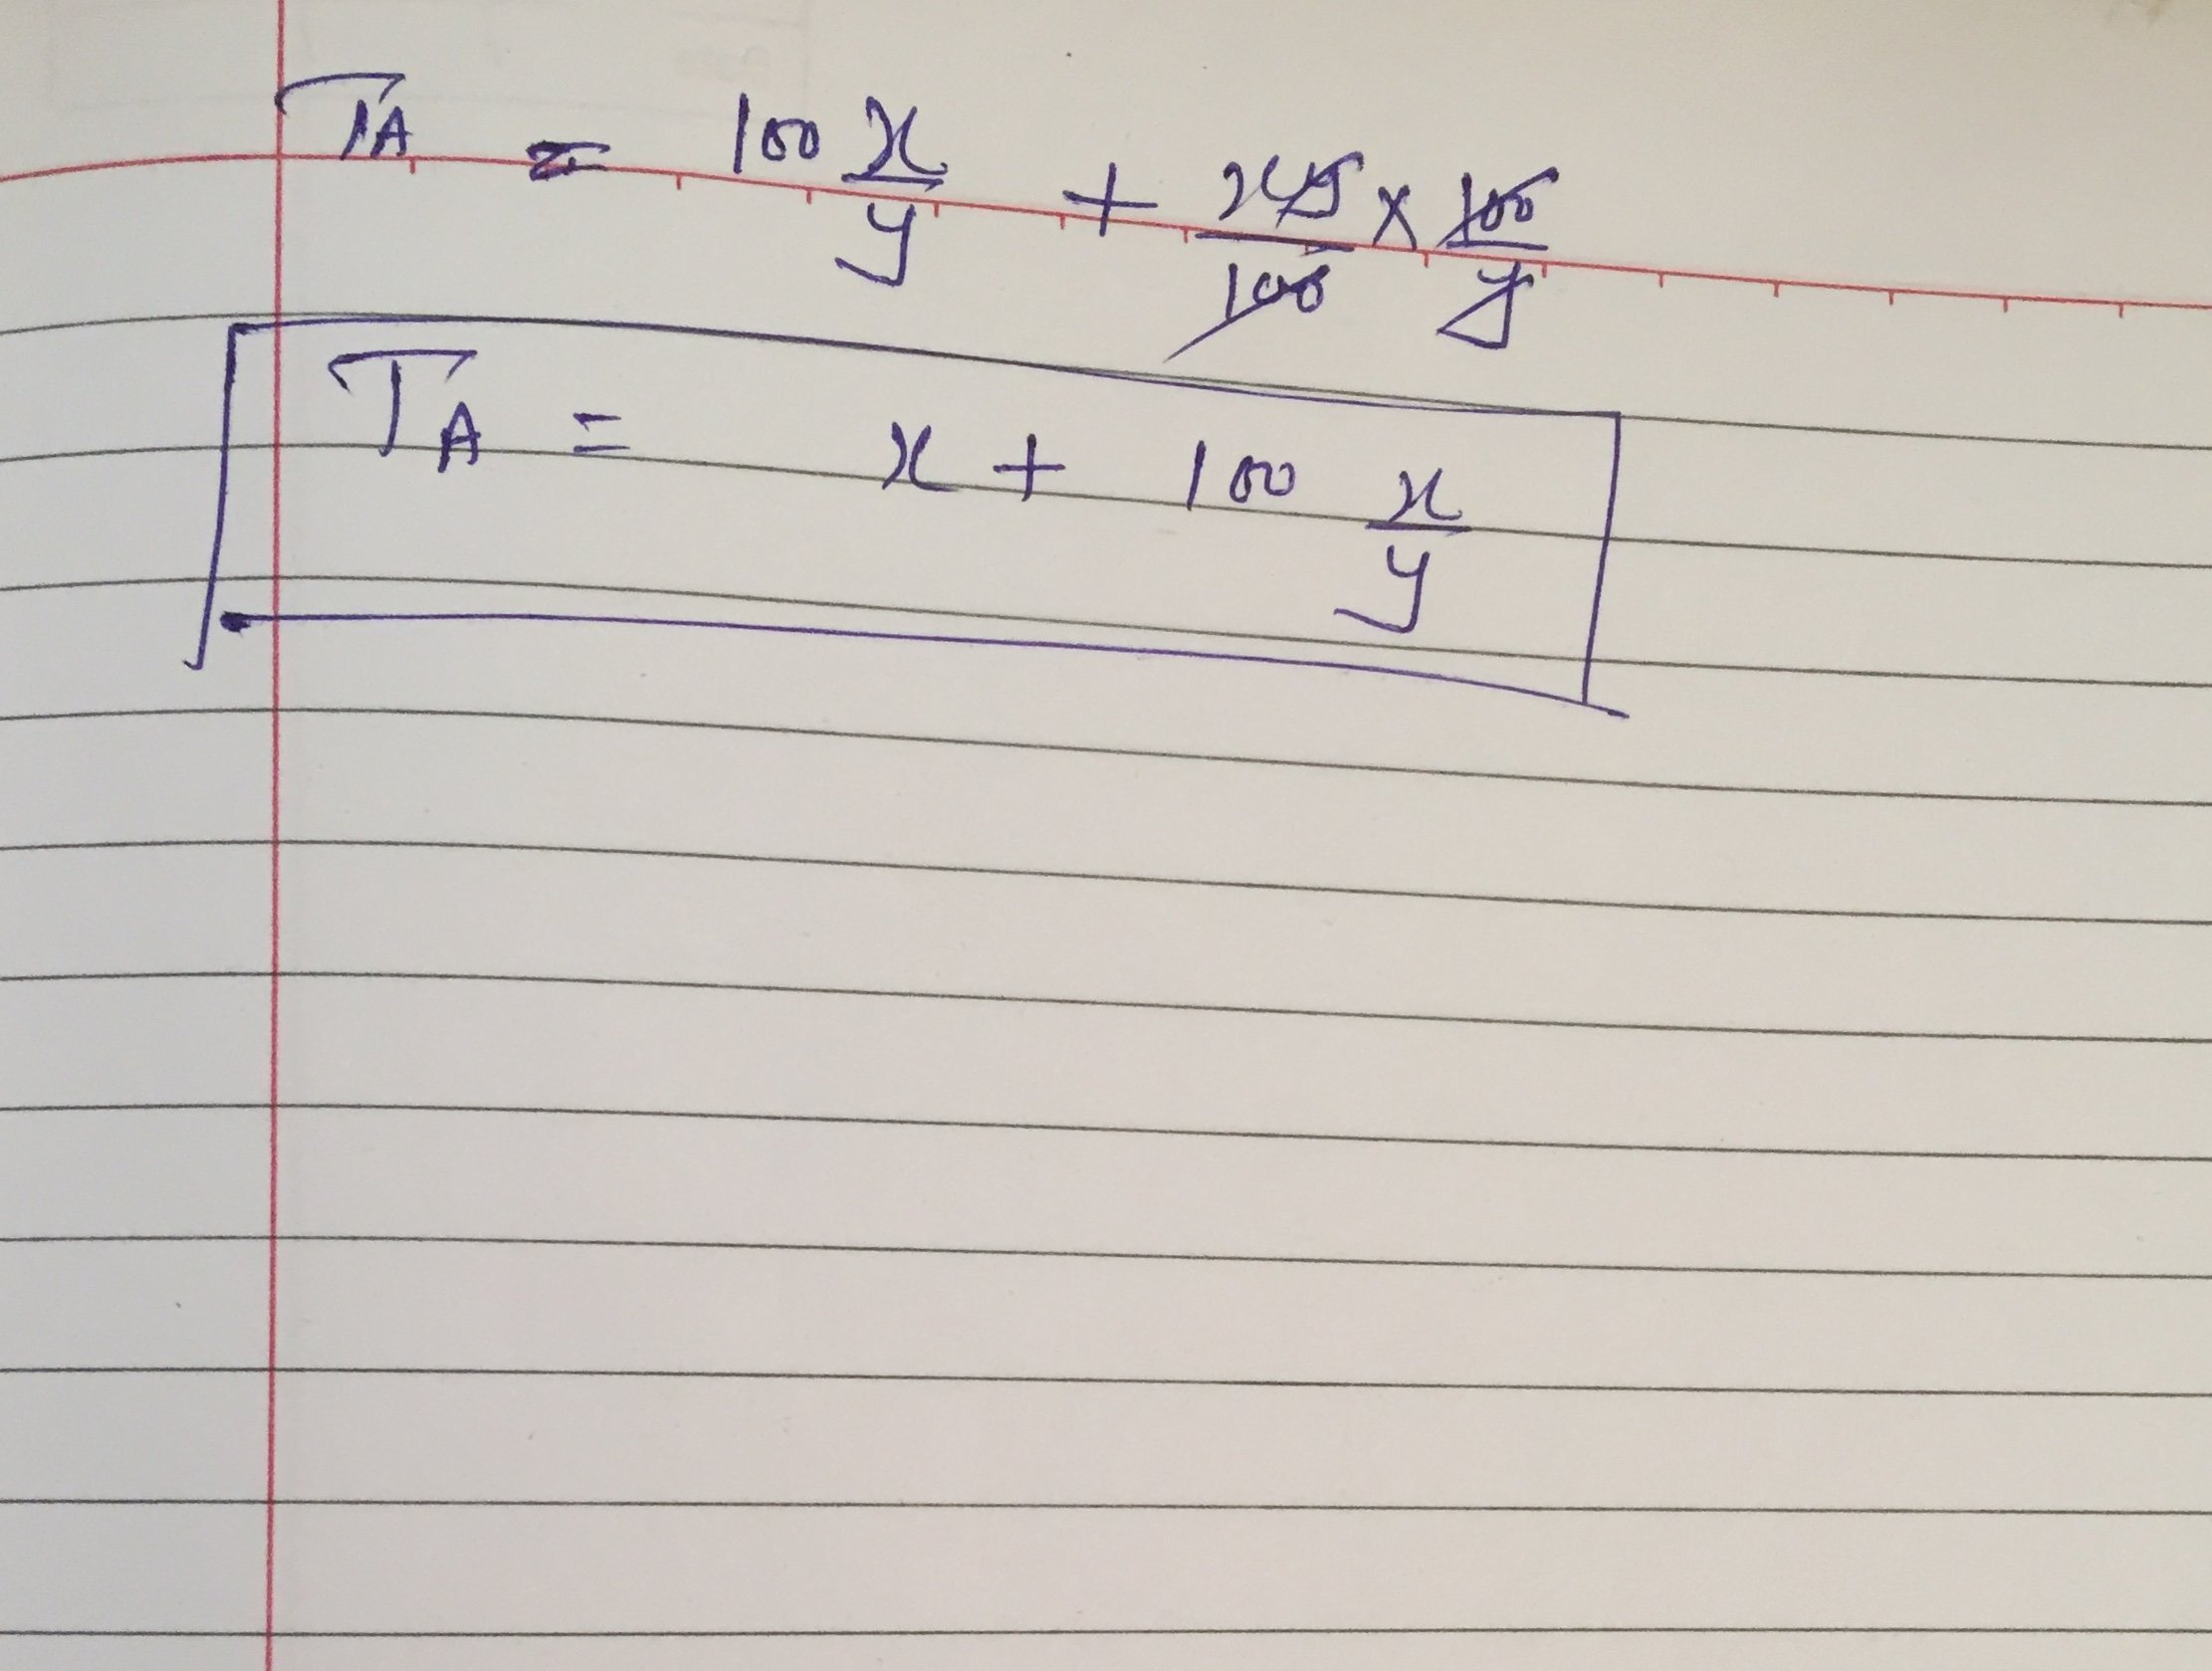 T_A = 100 x/y + xy/100 × 100/y
T_A = x + 100 x/y